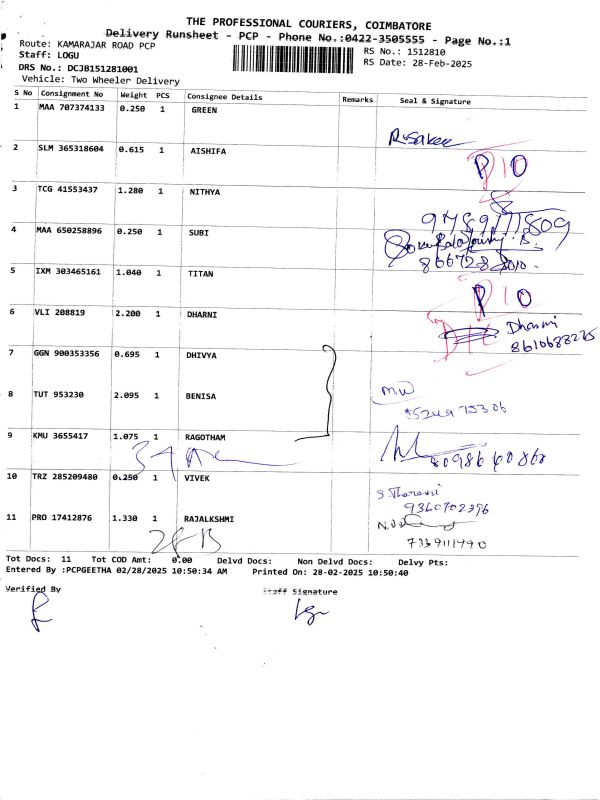 THE PROFESSIONAL COURIERS, COIMBATORE
Delivery Runsheet - PCP - Phone No.:0422-3505555 - Page No.:1
Route: KAMARAJAR ROAD PCP
RS No.: 1512810
Staff: LOGU
RS Date: 28-Feb-2025
DRS No.: DCJB151281001
Vehicle: Two Wheeler Delivery
S No Consignment No Weight PCS Consignee Details Remarks Seal & Signature
1 MAA 707374133 0.250 1 GREEN
2 SLM 365318604 0.615 1 AISHIFA
P10
3 TCG 41553437 1.280 1 NITHYA
4 MAA 650258896 0.250 1 SUBI
5 IXM 303465161 1.040 1 TITAN
P10
6 VLI 208819 2.200 1 DHARNI
Dharni
7 GGN 900353356 0.695 1 DHIVYA
8 TUT 953230 2.095 1 BENISA
9 KMU 3655417 1.075 1 RAGOTHAM
10 TRZ 285209480 0.250 1 VIVEK
9360702396
11 PRO 17412876 1.330 1 RAJALKSHMI
7339111990
Tot Docs: 11 Tot COD Amt: 0.00 Delvd Docs: Non Delvd Docs: Delvy Pts:
Entered By :PCPGEETHA 02/28/2025 10:50:34 AM Printed On: 28-02-2025 10:50:40
Verified By
Staff Signature